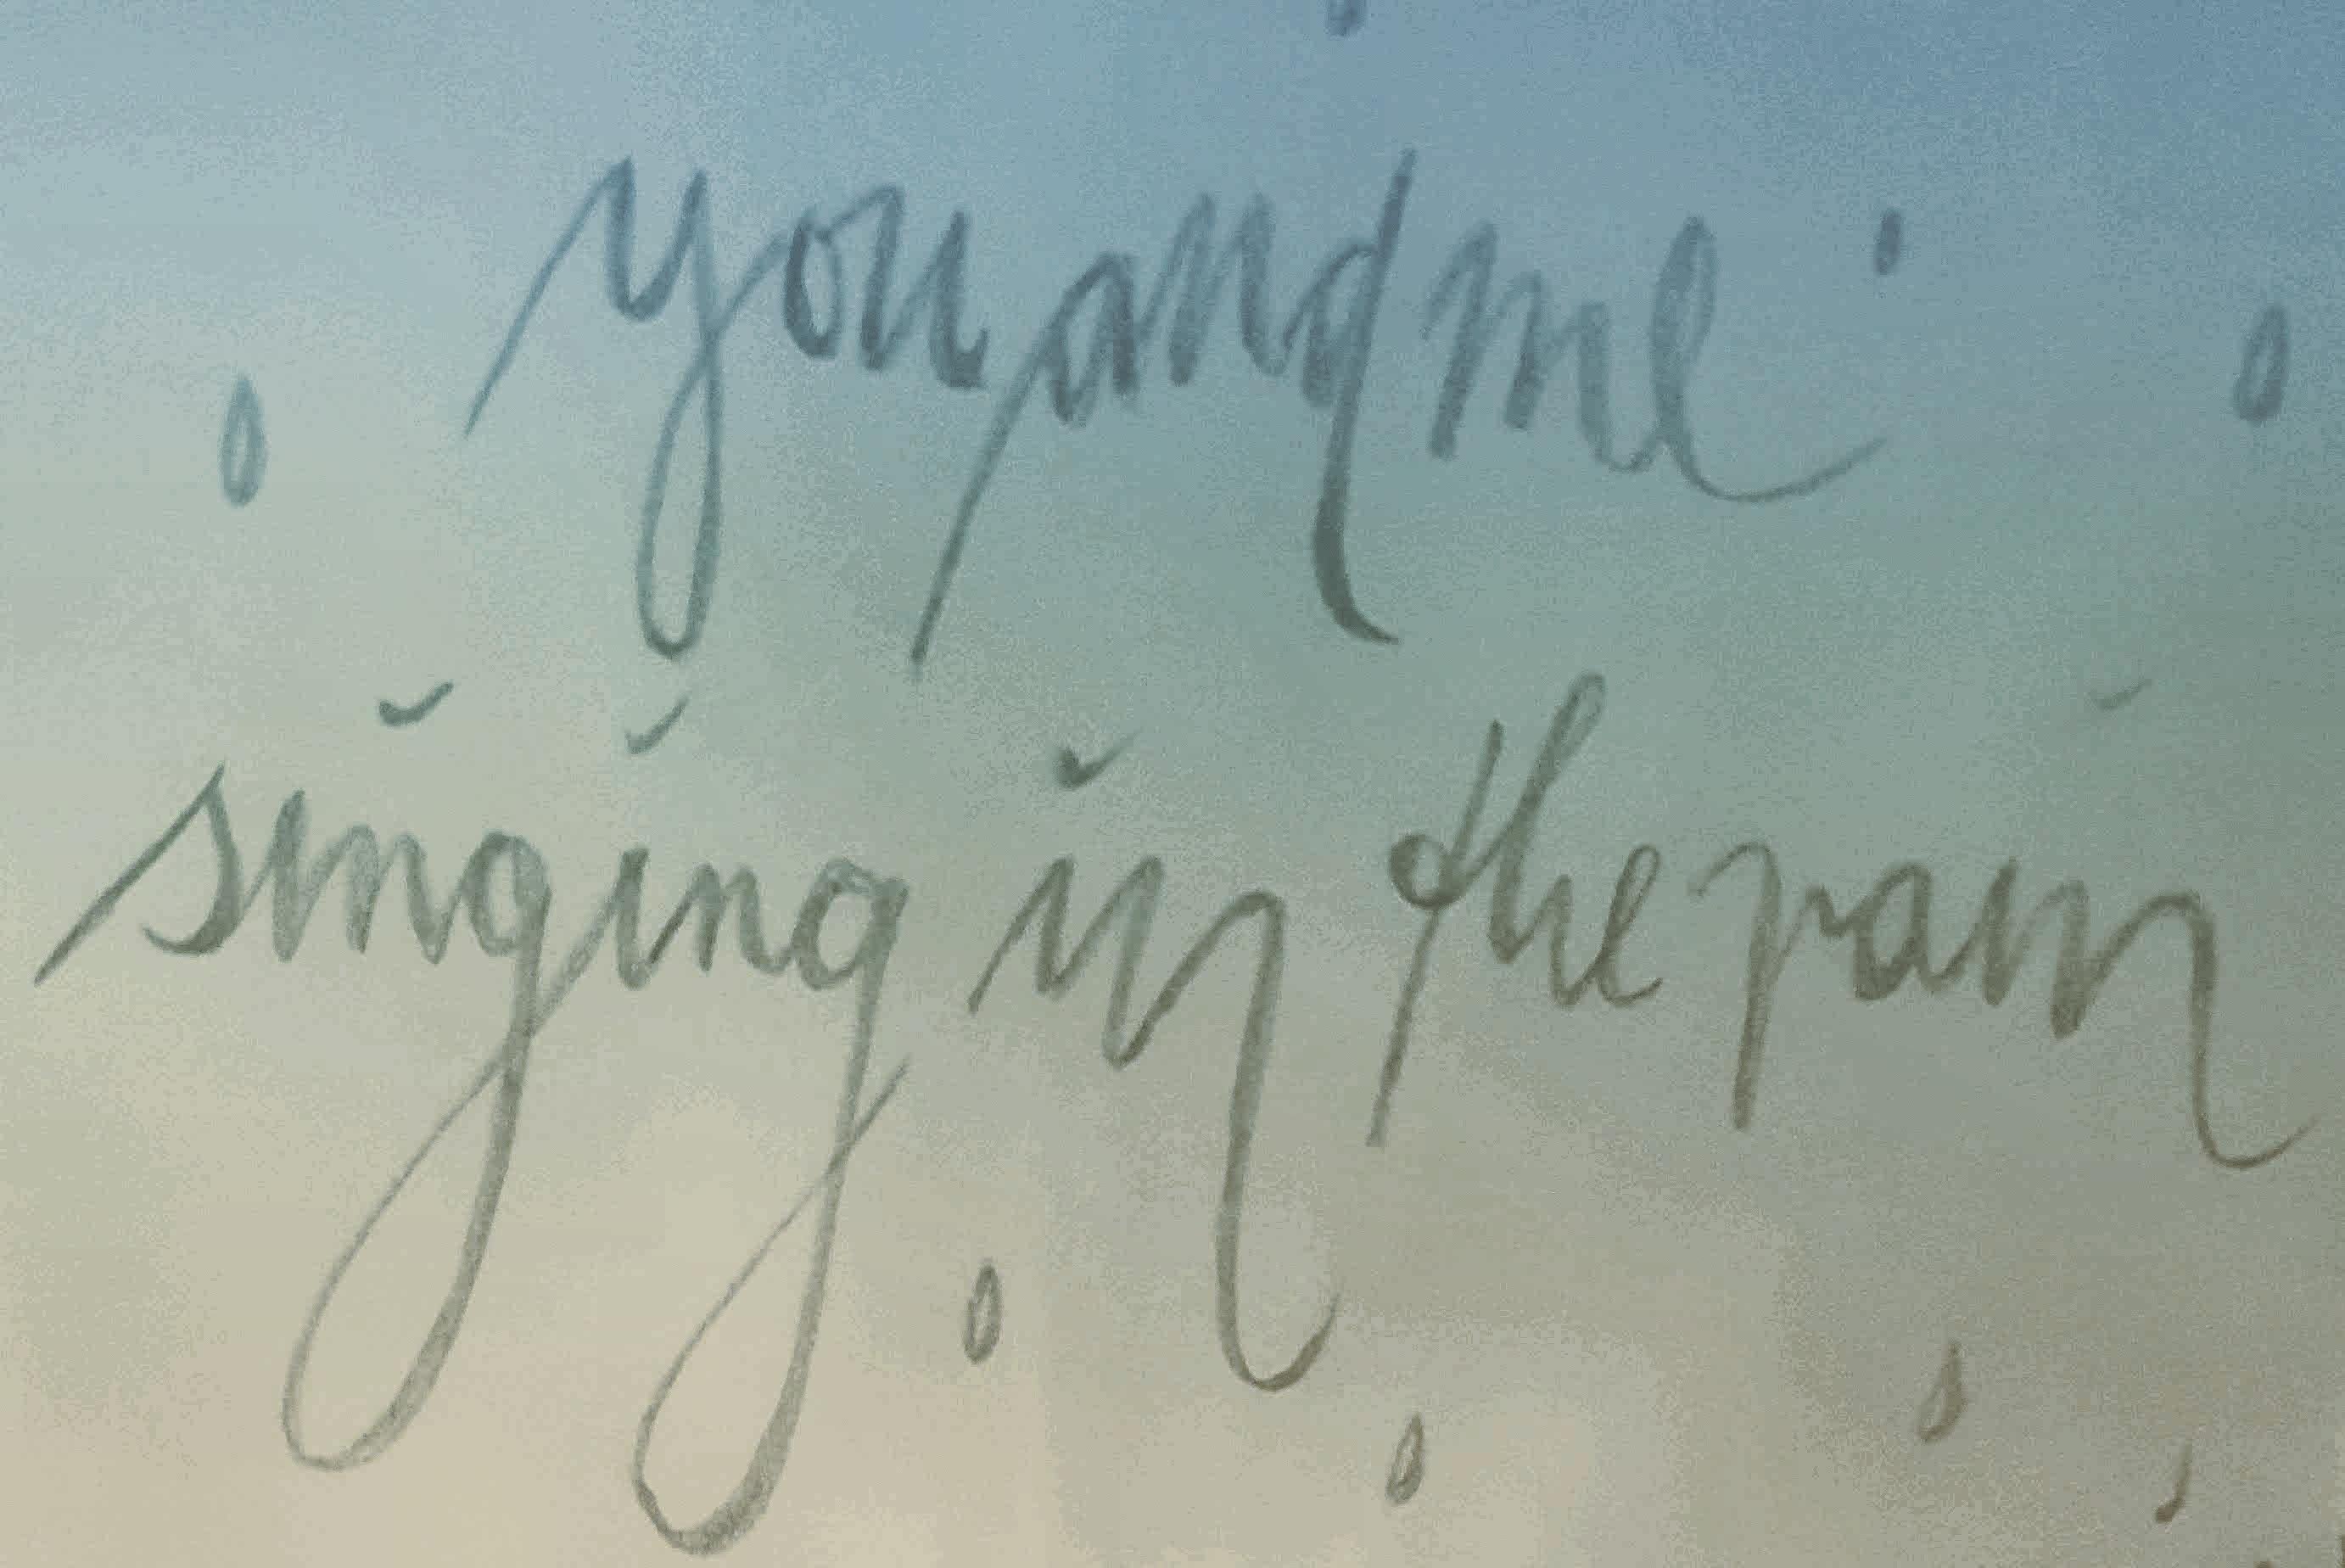 you and me
singing in the rain